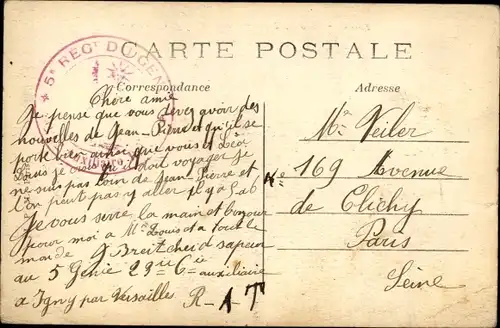 CARTE POSTALE
* 5e REGT DU GENIE
Correspondance
Adresse
Chère amie
Je pense que vous devez avoir des
nouvelles de Jean-Pierre et qu'il se
porte bien ainsi que vous et Léa
je doit voyager je
ne suis pas loin de Jean-Pierre et
l'on peut pas y aller
Je vous serre la main et bonjour
pour moi a Me Louis et a tout le
monde J Breitcheid sapeur
au 5 Genie 23me Cie auxiliaire
a Igny par Versailles R-AT
Me Veiler
No 169 Avenue
de Clichy
Paris
Seine